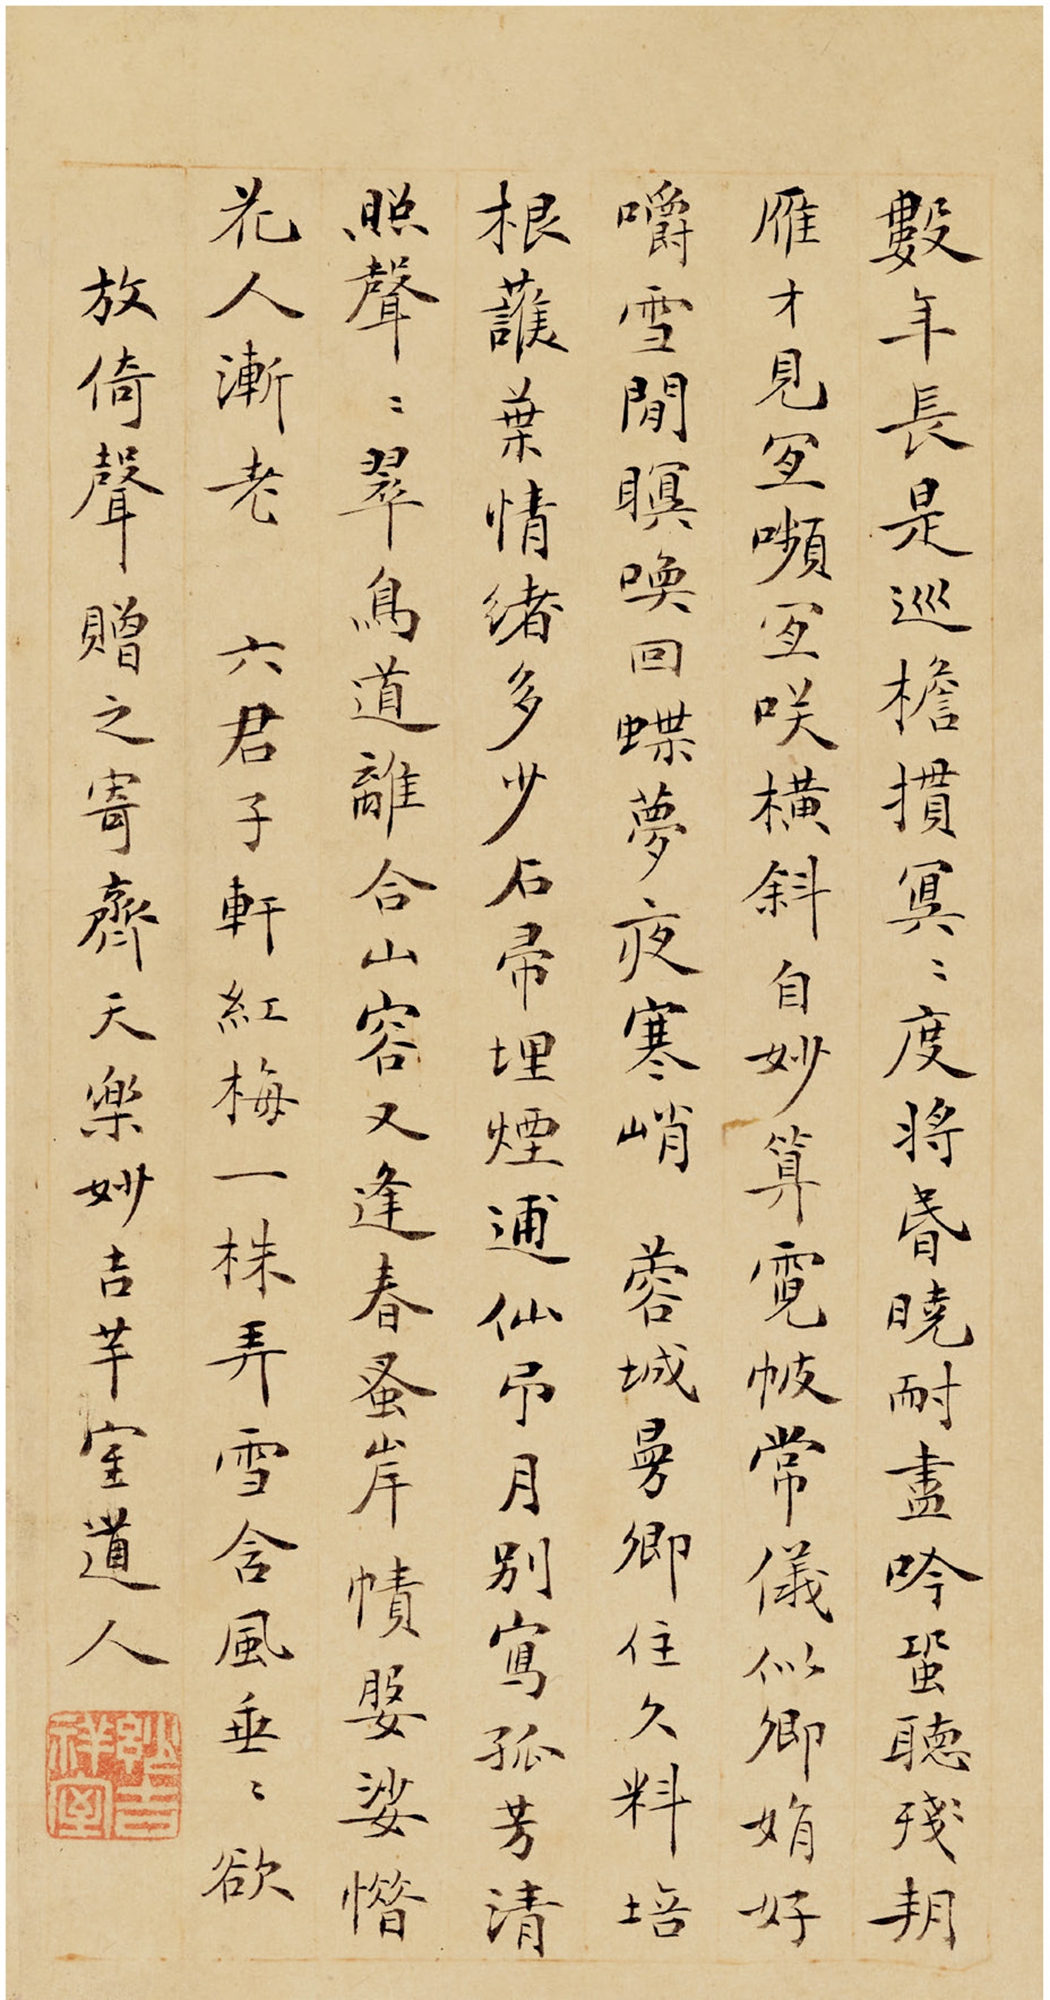 數年長是巡檐摜冥〻度將昏曉耐盡吟蛩聽殘朔
雁才見宜嚬宜咲橫斜自妙算霓帔常儀似卿娟好
嚼雪閒瞑喚回蝶夢夜寒峭　蓉城曼卿住久料培
根護葉情緒多少石帚埋煙逋仙弔月別寫孤芳清
照聲〻翠鳥道離合山容又逢春蚤岸幘婆娑憯
花人漸老　六君子軒紅梅一株弄雪含風垂〻欲
放倚聲贈之寄齊天樂妙吉羊室道人
妙吉祥室